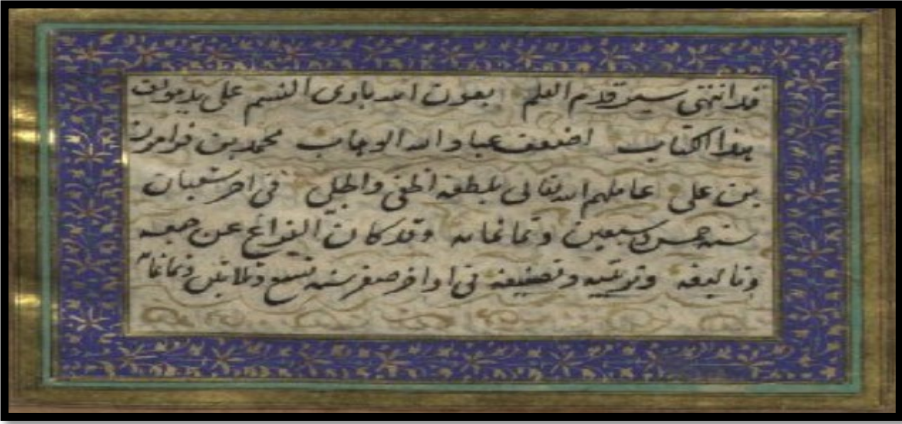 قد انتهى سير قدم العلم بعون الله بارى النسم على يد مولف
هذا الكتاب اضعف عباد الله الوهاب محمد بن فرامرز
بن على عاملهم الله تعالى بلطفه الخفى والجلى فى اخر شعبان
سنه خمس وسبعين وثمانمايه وقد كان الفراغ عن جمعه
وتاليفه وترتيبه وتصنيفه فى اواخر صفر سنه تسع وثلاثين وثمانمايه